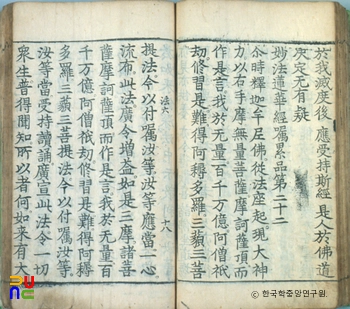 於我滅度後 應受持斯經 是人於佛道
决定无有疑
妙法蓮華經囑累品第二十二
尒時釋迦牟尼佛從法座起現大神
力以右手摩無量菩薩摩訶薩頂而
作是言我於无量百千万億阿僧祇
劫修習是難得阿耨多羅三藐三菩
法六 十八
提法今以付囑汝等汝等應當一心
流布此法廣令增益如是三摩諸菩
薩摩訶薩頂而作是言我於无量百
千万億阿僧祇劫修習是難得阿耨
多羅三藐三菩提法今以付囑汝等
汝等當受持讀誦廣宣此法令一切
衆生普得聞知所以者何如来有大
ⓒ 한국학중앙연구원.